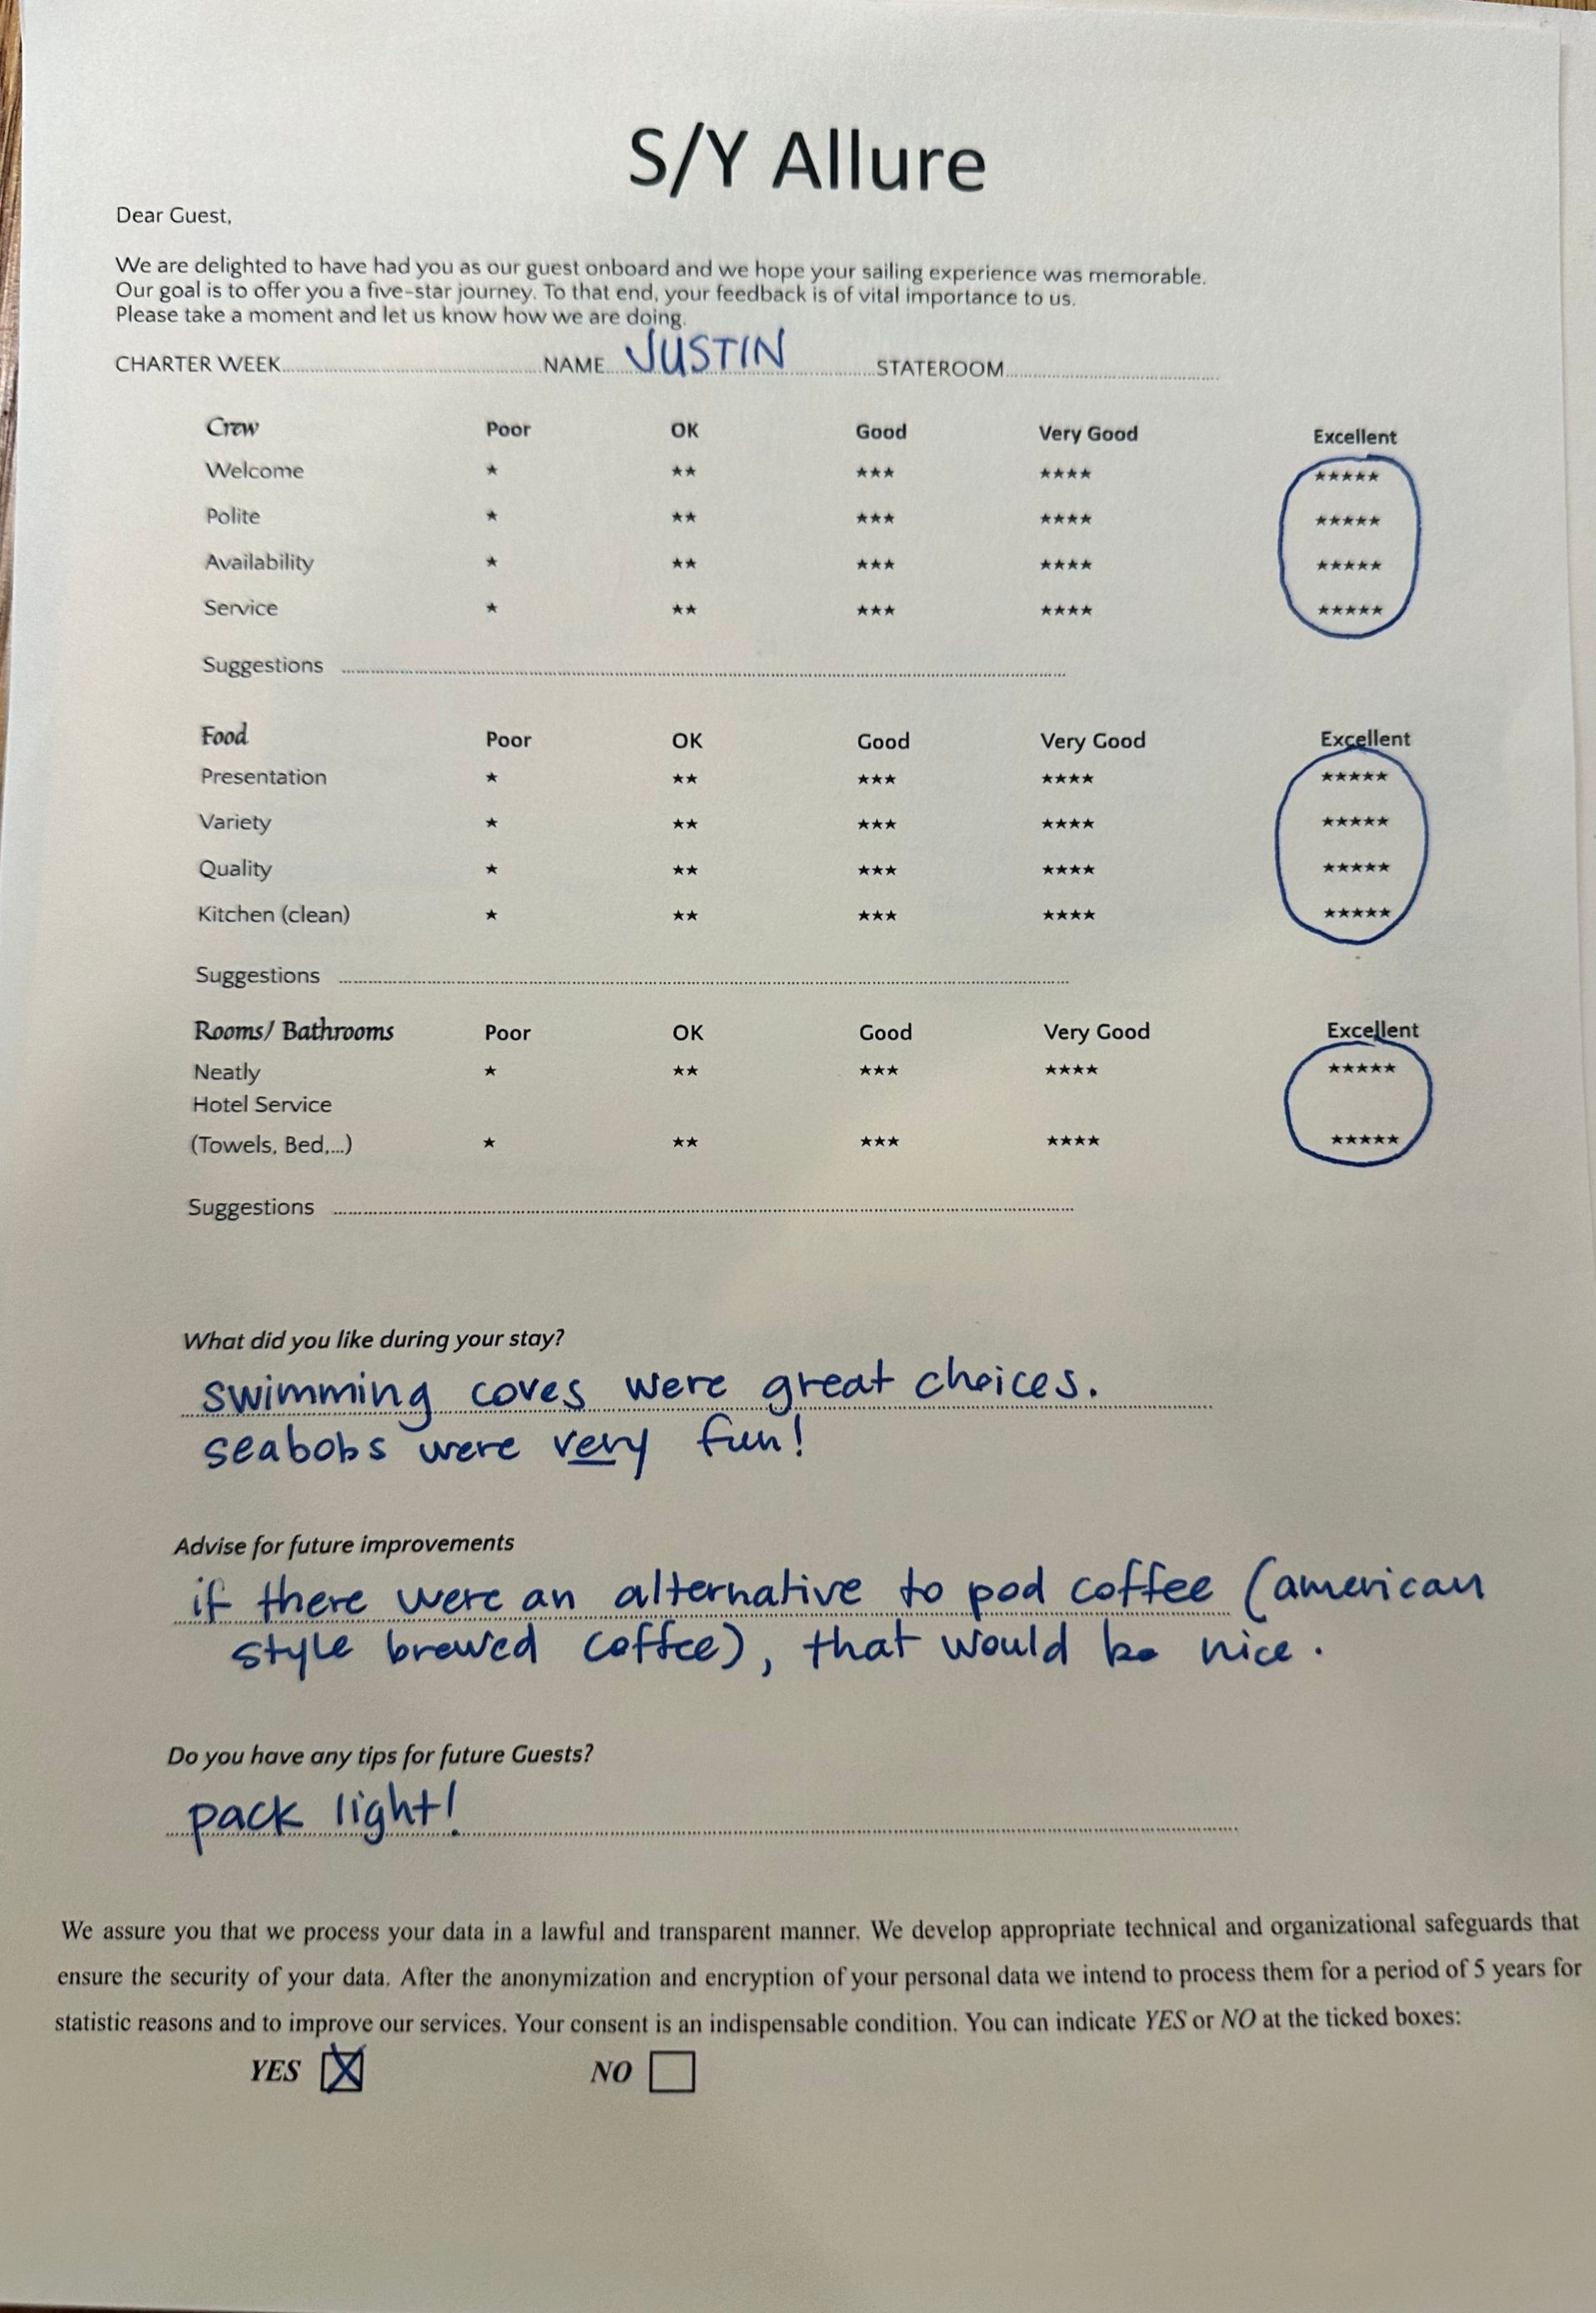 S/Y Allure
Dear Guest,
We are delighted to have had you as our guest onboard and we hope your sailing experience was memorable.
Our goal is to offer you a five-star journey. To that end, your feedback is of vital importance to us.
Please take a moment and let us know how we are doing.
CHARTER WEEK.......... NAME.... JUSTIN ..........STATEROOM..........
Crew Poor OK Good Very Good Excellent
Welcome ★ ★★ ★★★ ★★★★ ★★★★★
Polite ★ ★★ ★★★ ★★★★ ★★★★★
Availability ★ ★★ ★★★ ★★★★ ★★★★★
Service ★ ★★ ★★★ ★★★★ ★★★★★
Suggestions ..........
Food Poor OK Good Very Good Excellent
Presentation ★ ★★ ★★★ ★★★★ ★★★★★
Variety ★ ★★ ★★★ ★★★★ ★★★★★
Quality ★ ★★ ★★★ ★★★★ ★★★★★
Kitchen (clean) ★ ★★ ★★★ ★★★★ ★★★★★
Suggestions ..........
Rooms/ Bathrooms Poor OK Good Very Good Excellent
Neatly ★ ★★ ★★★ ★★★★ ★★★★★
Hotel Service
(Towels, Bed,...) ★ ★★ ★★★ ★★★★ ★★★★★
Suggestions ..........
What did you like during your stay?
swimming coves were great choices.
seabobs were very fun!
Advise for future improvements
if there were an alternative to pod coffee (american
style brewed coffee), that would be nice.
Do you have any tips for future Guests?
pack light!
We assure you that we process your data in a lawful and transparent manner. We develop appropriate technical and organizational safeguards that
ensure the security of your data. After the anonymization and encryption of your personal data we intend to process them for a period of 5 years for
statistic reasons and to improve our services. Your consent is an indispensable condition. You can indicate YES or NO at the ticked boxes:
YES ☒ NO ☐